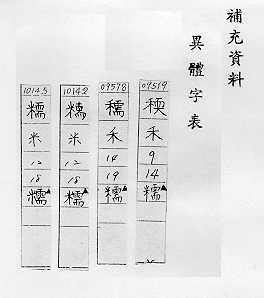 補充資料
異體字表
09519
稬
禾
9
14
糯
09578
穤
禾
14
19
糯
10142
米
12
18
糯
10145
糯
米
12
18
糯